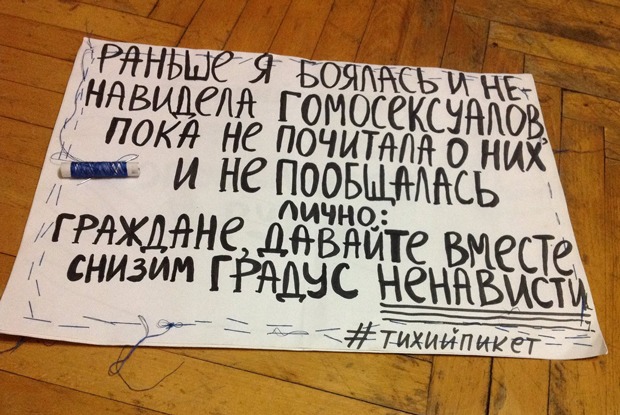 РАНЬШЕ Я БОЯЛАСЬ И НЕ-
НАВИДЕЛА ГОМОСЕКСУАЛОВ,
ПОКА НЕ ПОЧИТАЛА О НИХ
И НЕ ПООБЩАЛАСЬ
ЛИЧНО:
ГРАЖДАНЕ, ДАВАЙТЕ ВМЕСТЕ
СНИЗИМ ГРАДУС НЕНАВИСТИ
#ТИХИЙПИКЕТ